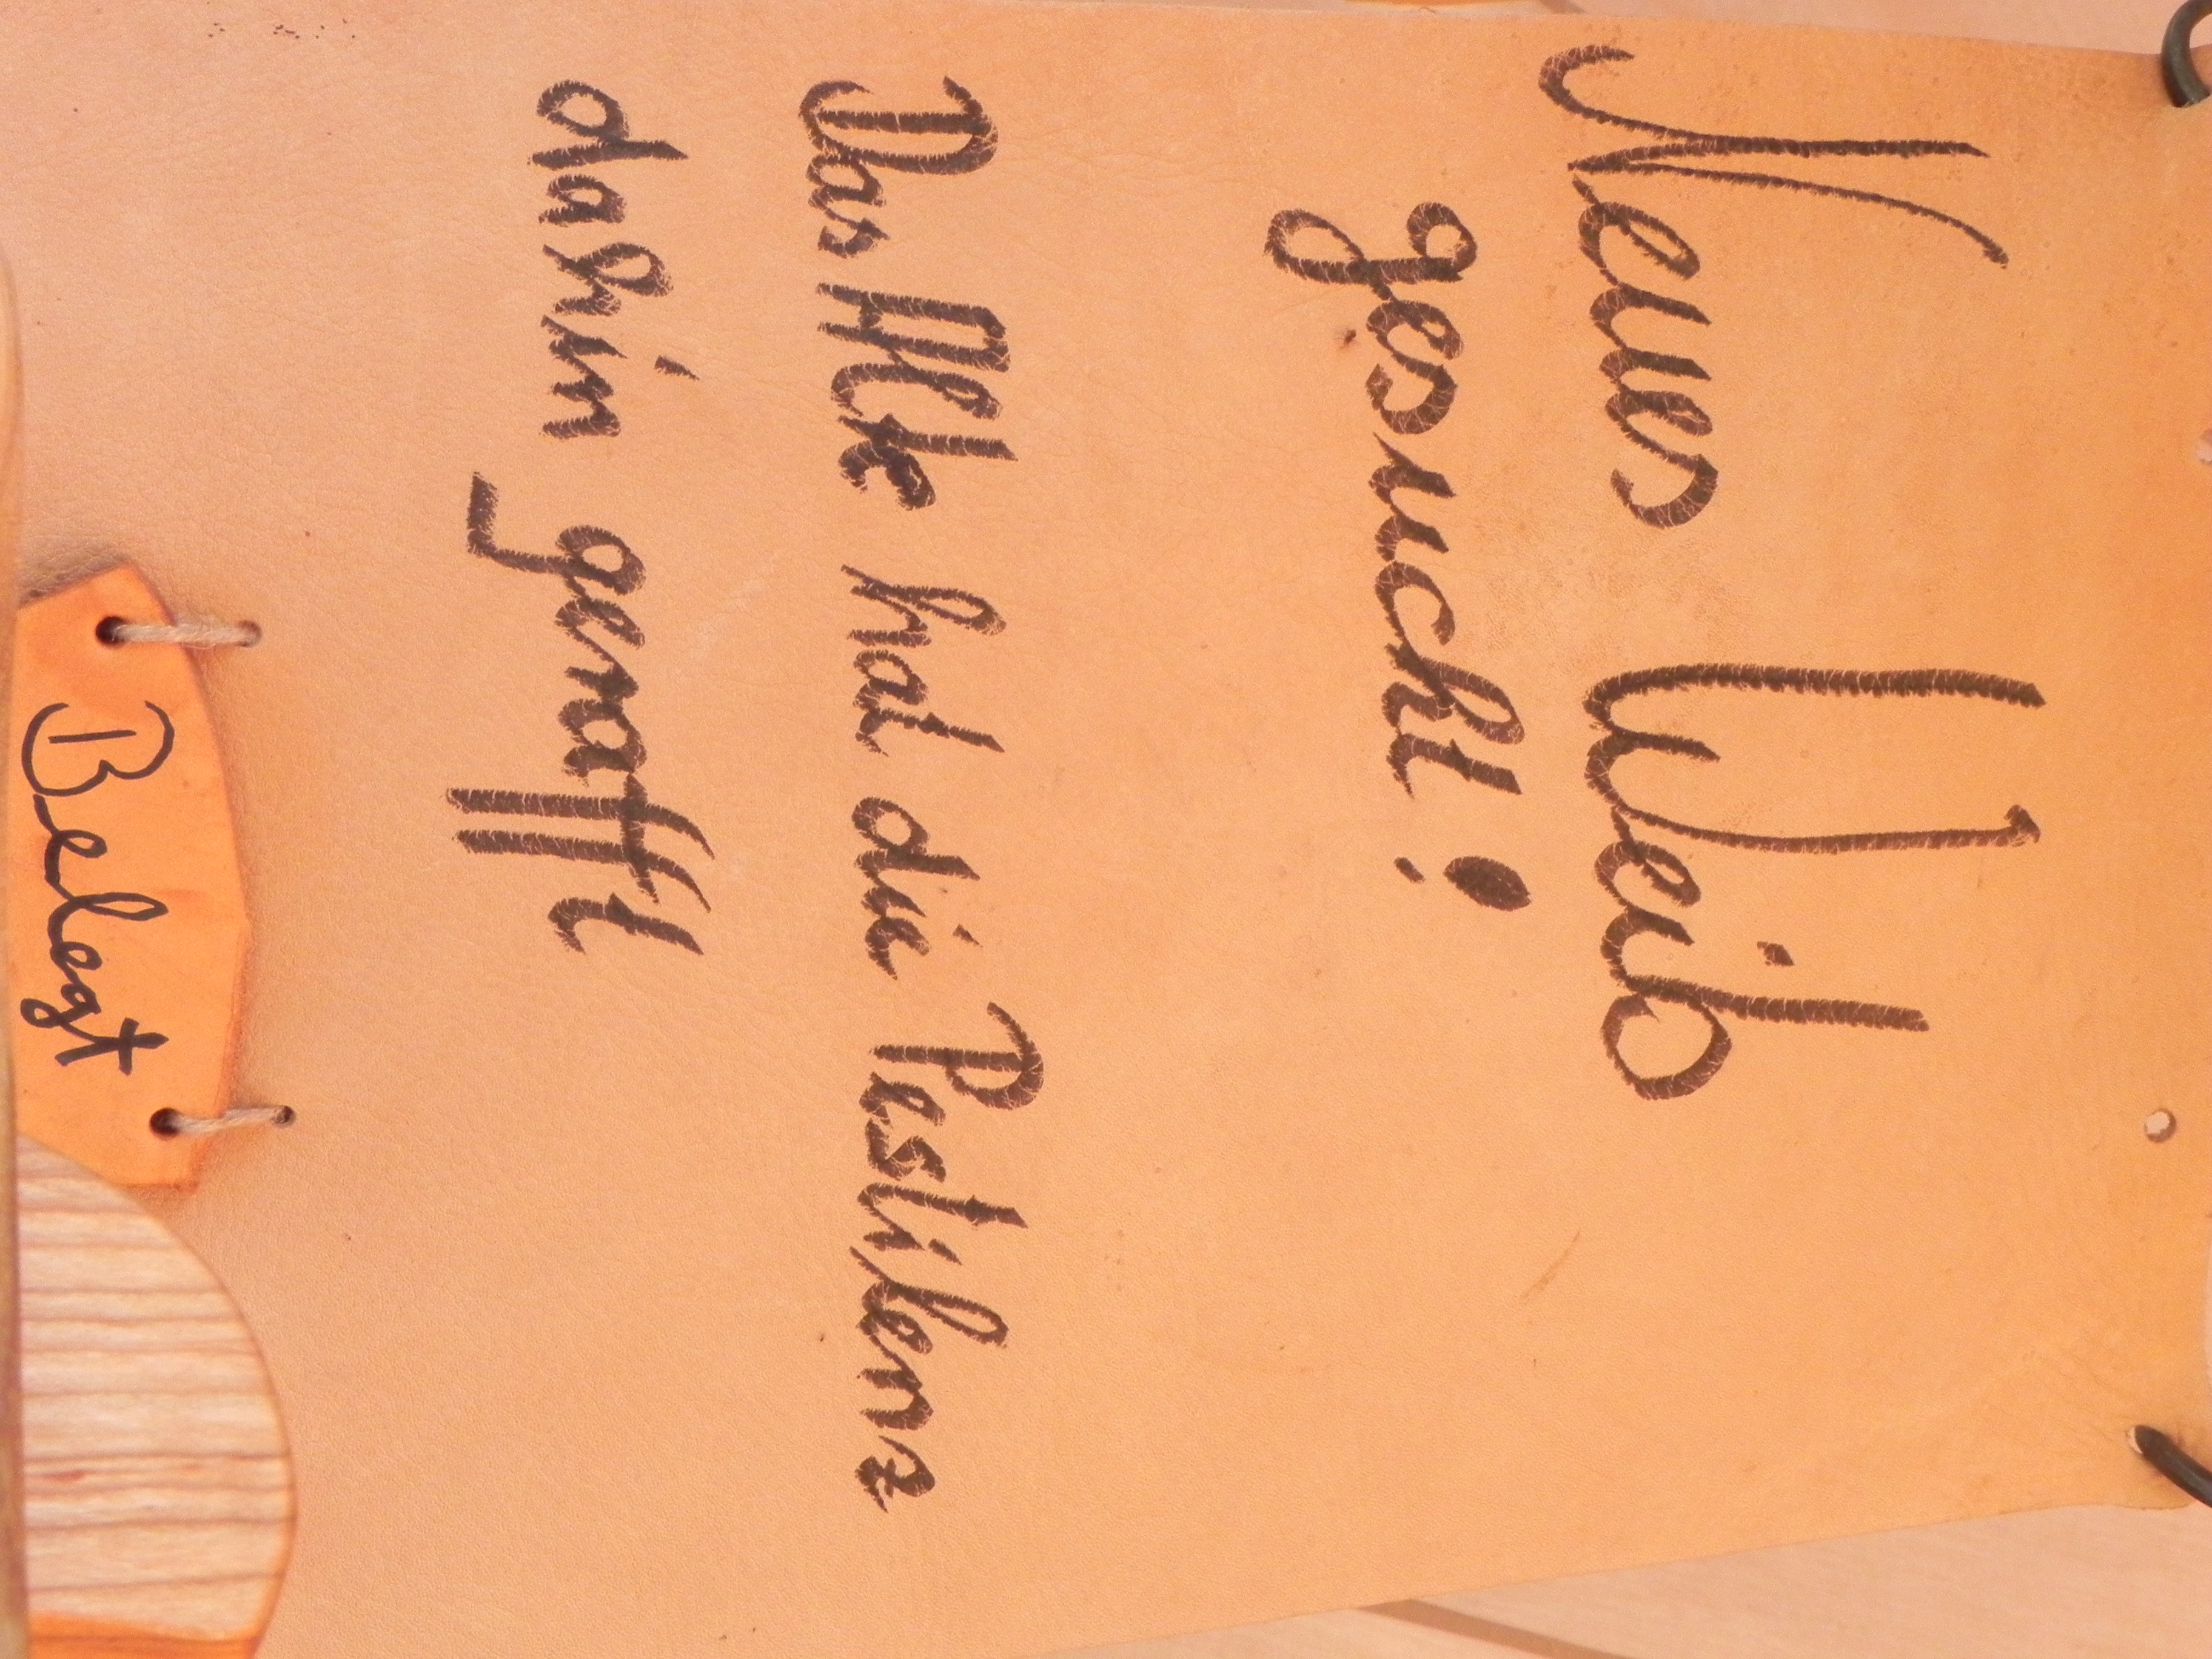 Neues Weib
gesucht!
Das Alte hat die Pestilenz
dahin gerafft
Belegt